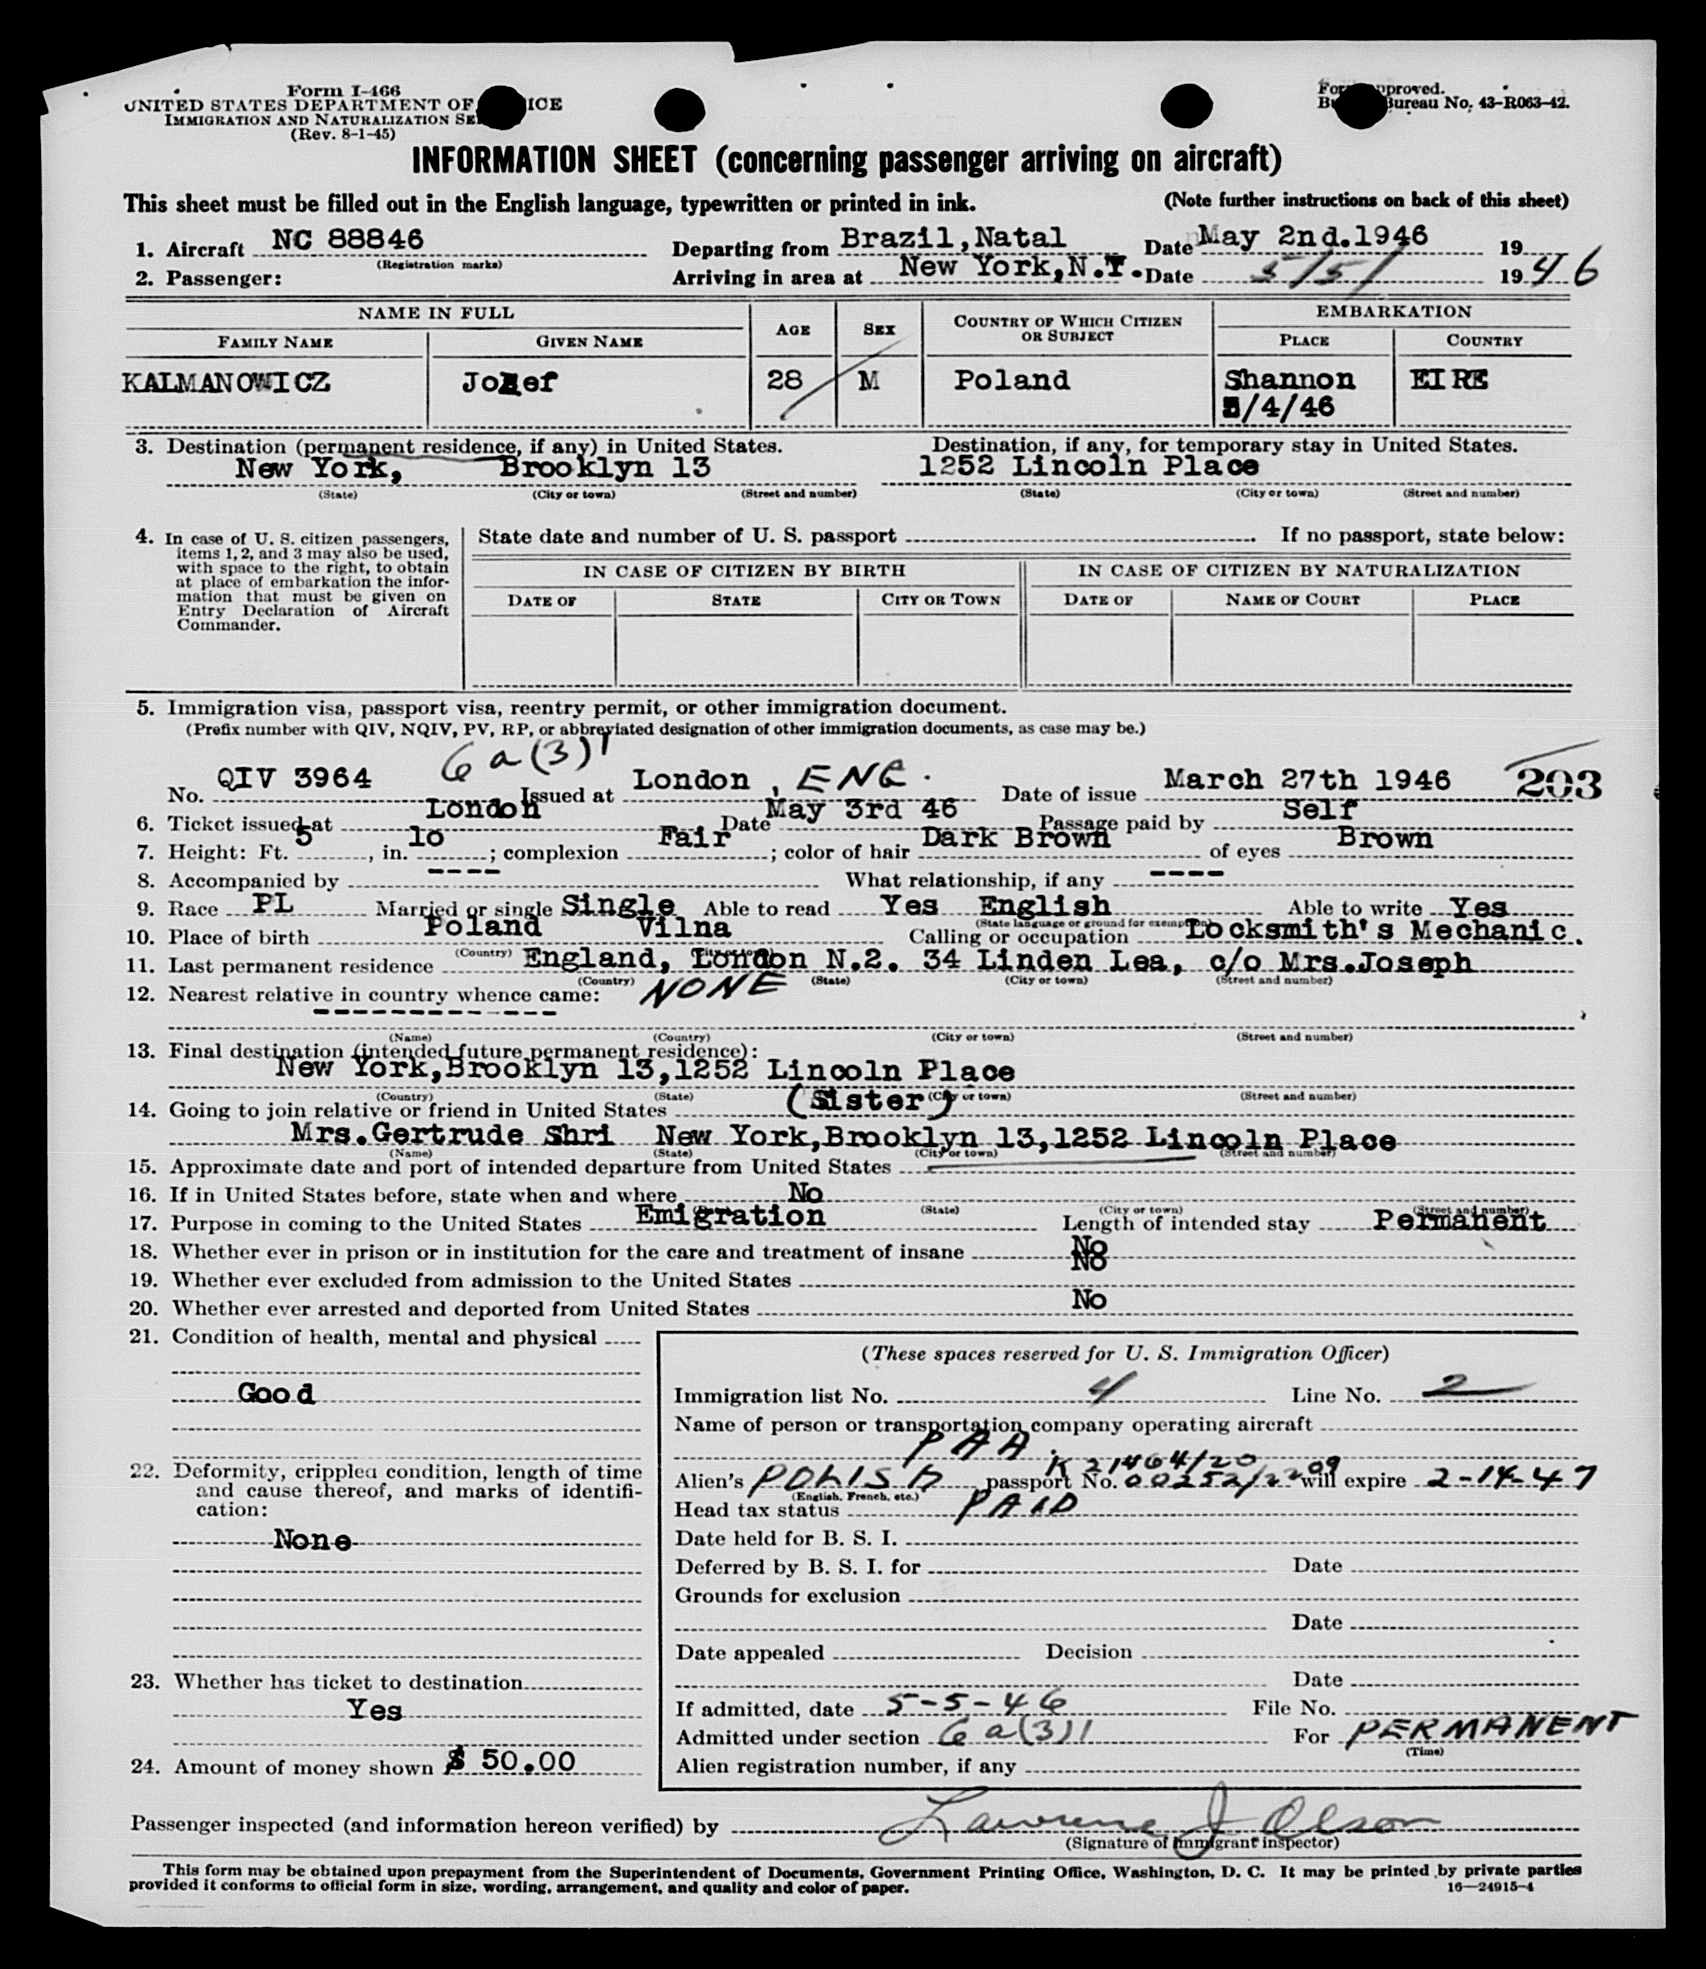 Form I-466
UNITED STATES DEPARTMENT OF ICE
IMMIGRATION AND NATURALIZATION SE
(Rev. 8-1-45)
Form approved.
Bureau No. 43-R063-42.
INFORMATION SHEET (concerning passenger arriving on aircraft)
This sheet must be filled out in the English language, typewritten or printed in ink. (Note further instructions on back of this sheet)
1. Aircraft NC 88846 Departing from Brazil,Natal Date May 2nd.1946 19
(Registration marks)
2. Passenger: Arriving in area at New York,N.Y. Date 5/5/ 1946
NAME IN FULL AGE SEX COUNTRY OF WHICH CITIZEN OR SUBJECT EMBARKATION
FAMILY NAME GIVEN NAME PLACE COUNTRY
KALMANOWICZ Jozef 28 M Poland Shannon EIRE
5/4/46
3. Destination (permanent residence, if any) in United States. Destination, if any, for temporary stay in United States.
New York, Brooklyn 13 1252 Lincoln Place
(State) (City or town) (Street and number) (State) (City or town) (Street and number)
4. In case of U. S. citizen passengers, items 1, 2, and 3 may also be used, with space to the right, to obtain at place of embarkation the information that must be given on Entry Declaration of Aircraft Commander.
State date and number of U. S. passport . If no passport, state below:
IN CASE OF CITIZEN BY BIRTH IN CASE OF CITIZEN BY NATURALIZATION
DATE OF STATE CITY OR TOWN DATE OF NAME OF COURT PLACE
5. Immigration visa, passport visa, reentry permit, or other immigration document.
(Prefix number with QIV, NQIV, PV, RP, or abbreviated designation of other immigration documents, as case may be.)
6a(3)1
No. QIV 3964 Issued at London, ENG. Date of issue March 27th 1946 203
6. Ticket issued at London Date May 3rd 46 Passage paid by Self
7. Height: Ft. 5, in. 10; complexion Fair; color of hair Dark Brown of eyes Brown
8. Accompanied by ---- What relationship, if any ----
9. Race PL Married or single Single Able to read Yes English Able to write Yes
(State language or ground for exemption)
10. Place of birth Poland Vilna Calling or occupation Locksmith's Mechanic.
(Country) (City or town)
11. Last permanent residence England, London N.2. 34 Linden Lea, c/o Mrs.Joseph
(Country) (State) (City or town) (Street and number)
12. Nearest relative in country whence came: NONE
-------------
(Name) (Country) (City or town) (Street and number)
13. Final destination (intended future permanent residence):
New York,Brooklyn 13,1252 Lincoln Place
(Country) (State) (City or town) (Street and number)
14. Going to join relative or friend in United States (Sister)
Mrs.Gertrude Shri New York,Brooklyn 13,1252 Lincoln Place
(Name) (State) (City or town) (Street and number)
15. Approximate date and port of intended departure from United States
16. If in United States before, state when and where No
(State) (City or town) (Street and number)
17. Purpose in coming to the United States Emigration Length of intended stay Permanent
18. Whether ever in prison or in institution for the care and treatment of insane No
19. Whether ever excluded from admission to the United States No
20. Whether ever arrested and deported from United States No
21. Condition of health, mental and physical
Good
22. Deformity, crippled condition, length of time and cause thereof, and marks of identification:
None
23. Whether has ticket to destination
Yes
24. Amount of money shown $ 50.00
(These spaces reserved for U. S. Immigration Officer)
Immigration list No. 4 Line No. 2
Name of person or transportation company operating aircraft
PAA.
K 21464/20
Alien's POLISH passport No. 00252/2209 will expire 2-14-47
(English, French, etc.)
Head tax status PAID
Date held for B. S. I.
Deferred by B. S. I. for Date
Grounds for exclusion
Date
Date appealed Decision
Date
If admitted, date 5-5-46 File No.
Admitted under section 6a(3)1 For PERMANENT
(Time)
Alien registration number, if any
Passenger inspected (and information hereon verified) by Lawrence J Olson
(Signature of immigrant inspector)
This form may be obtained upon prepayment from the Superintendent of Documents, Government Printing Office, Washington, D. C. It may be printed by private parties
provided it conforms to official form in size, wording, arrangement, and quality and color of paper.
16—24915-4